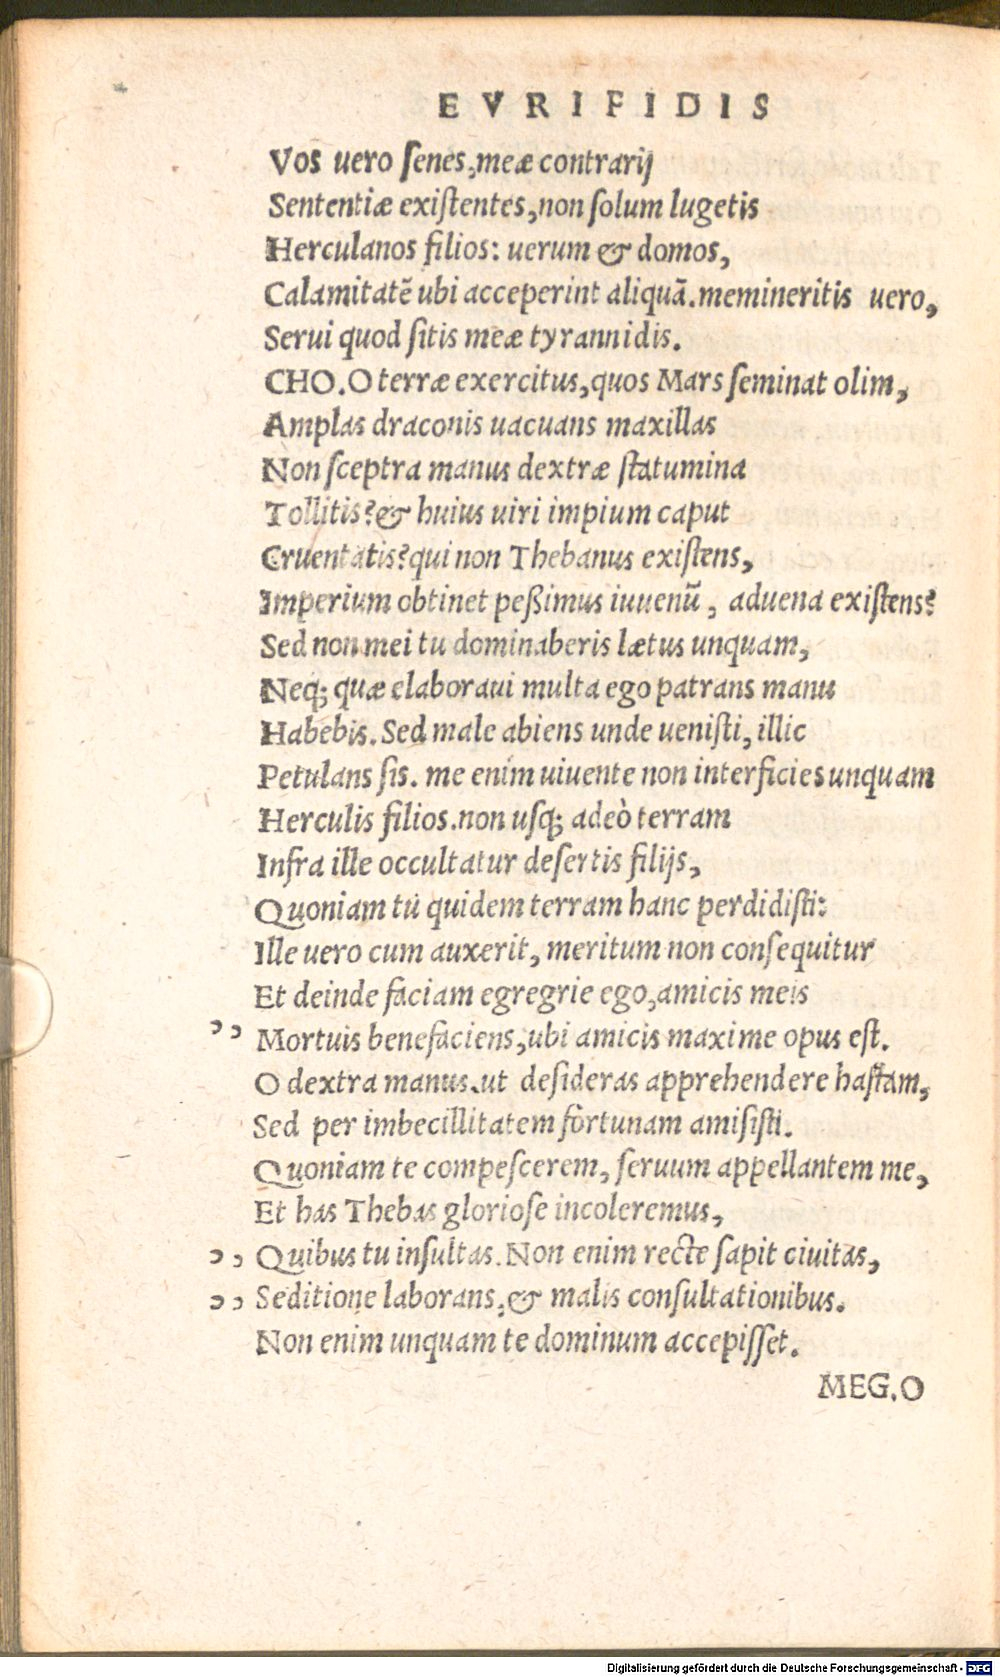 EVRIFIDIS
Vos uero ſenes, meæ contrarij
Sententiæ exiſtentes, non ſolum lugetis
Herculanos filios: uerum & domos,
Calamitatẽ ubi acceperint aliquã. memineritis uero,
Serui quod ſitis meæ tyrannidis.
CHO. O terræ exercitus, quos Mars ſeminat olim,
Amplas draconis uacuans maxillas
Non ſceptra manus dextræ ſtatumina
Tollitis? & huius uiri impium caput
Cruentatis? qui non Thebanus exiſtens,
Imperium obtinet peßimus iuuenũ, aduena exiſtens?
Sed non mei tu dominaberis lætus unquam,
Neq; quæ elaboraui multa ego patrans manu
Habebis. Sed male abiens unde ueniſti, illic
Petulans ſis. me enim uiuente non interficies unquam
Herculis filios. non uſq; adeò terram
Infra ille occultatur deſertis filijs,
Quoniam tu quidem terram hanc perdidiſti:
Ille uero cum auxerit, meritum non conſequitur
Et deinde faciam egregrie ego, amicis meis
,, Mortuis benefaciens, ubi amicis maxime opus eſt.
O dextra manus, ut deſideras apprehendere haſtam,
Sed per imbecillitatem fortunam amiſiſti.
Quoniam te compeſcerem, ſeruum appellantem me,
Et has Thebas glorioſe incoleremus,
,, Quibus tu inſultas. Non enim recte ſapit ciuitas,
,, Seditione laborans, & malis conſultationibus.
Non enim unquam te dominum accepiſſet.
MEG. O
Digitalisierung gefördert durch die Deutsche Forschungsgemeinschaft - DFG